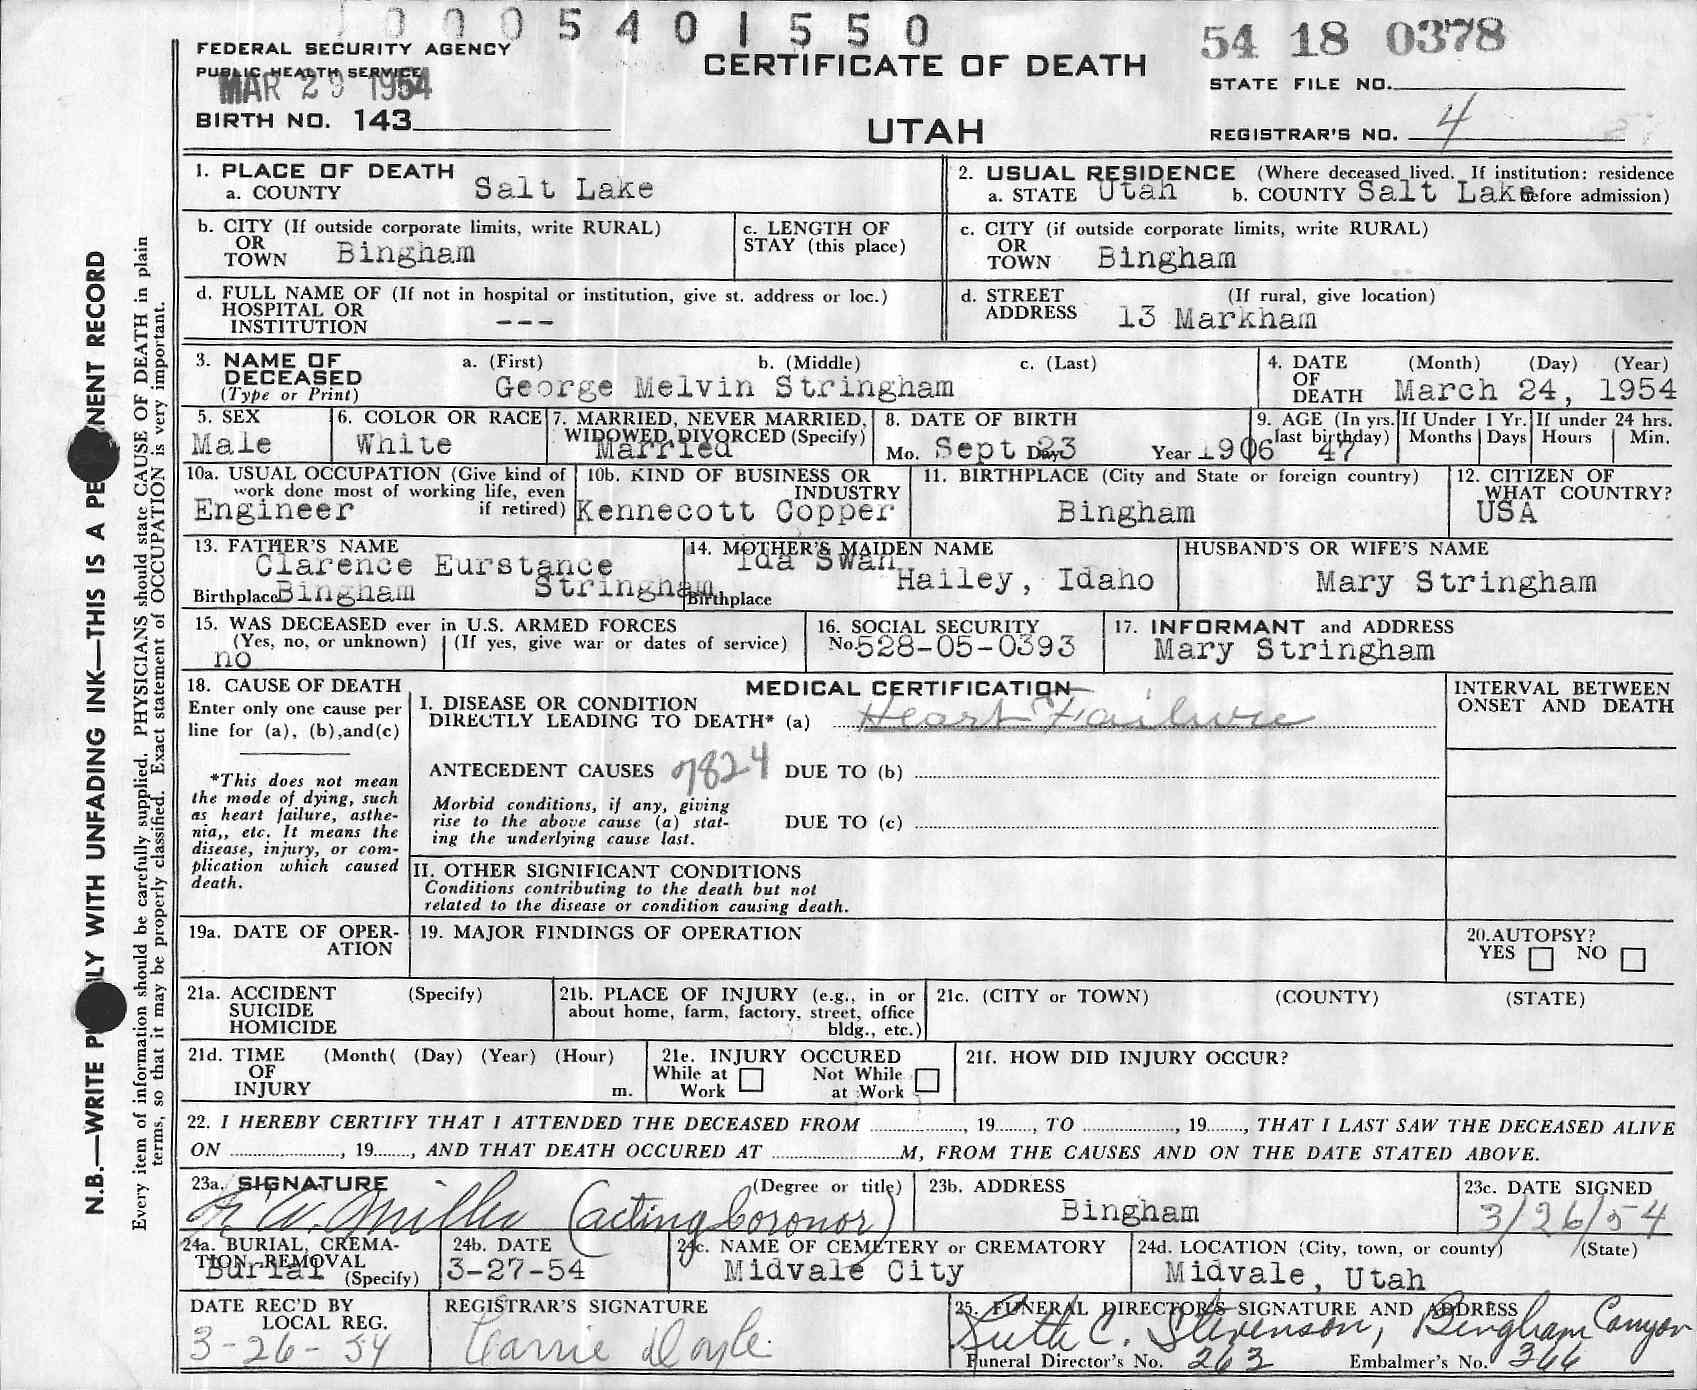 0 0 0 5 4 0 1 5 5 0
54 18 0378
FEDERAL SECURITY AGENCY
PUBLIC HEALTH SERVICE
MAR 29 1954
CERTIFICATE OF DEATH
UTAH
STATE FILE NO.
BIRTH NO. 143
REGISTRAR'S NO. 4
1. PLACE OF DEATH
a. COUNTY Salt Lake
2. USUAL RESIDENCE (Where deceased lived. If institution: residence
a. STATE Utah b. COUNTY Salt Lake before admission)
b. CITY (If outside corporate limits, write RURAL)
OR
TOWN Bingham
c. LENGTH OF
STAY (this place)
c. CITY (if outside corporate limits, write RURAL)
OR
TOWN Bingham
d. FULL NAME OF (If not in hospital or institution, give st. address or loc.)
HOSPITAL OR
INSTITUTION ---
d. STREET (If rural, give location)
ADDRESS 13 Markham
3. NAME OF a. (First) b. (Middle) c. (Last)
DECEASED
(Type or Print) George Melvin Stringham
4. DATE (Month) (Day) (Year)
OF
DEATH March 24, 1954
5. SEX
Male
6. COLOR OR RACE
White
7. MARRIED, NEVER MARRIED,
WIDOWED, DIVORCED (Specify)
Married
8. DATE OF BIRTH
Mo. Sept Day 23 Year 1906
9. AGE (In yrs.
last birthday)
47
If Under 1 Yr.
Months Days
If under 24 hrs.
Hours Min.
10a. USUAL OCCUPATION (Give kind of
work done most of working life, even
if retired)
Engineer
10b. KIND OF BUSINESS OR
INDUSTRY
Kennecott Copper
11. BIRTHPLACE (City and State or foreign country)
Bingham
12. CITIZEN OF
WHAT COUNTRY?
USA
13. FATHER'S NAME
Clarence Eurstance
Stringham
Birthplace Bingham
14. MOTHER'S MAIDEN NAME
Ida Swan
Hailey, Idaho
Birthplace
HUSBAND'S OR WIFE'S NAME
Mary Stringham
15. WAS DECEASED ever in U.S. ARMED FORCES
(Yes, no, or unknown) (If yes, give war or dates of service)
no
16. SOCIAL SECURITY
No. 528-05-0393
17. INFORMANT and ADDRESS
Mary Stringham
18. CAUSE OF DEATH
Enter only one cause per
line for (a), (b), and(c)
*This does not mean
the mode of dying, such
as heart failure, asthe-
nia,, etc. It means the
disease, injury, or com-
plication which caused
death.
MEDICAL CERTIFICATION
I. DISEASE OR CONDITION
DIRECTLY LEADING TO DEATH* (a) Heart Failure
ANTECEDENT CAUSES 7824 DUE TO (b)
Morbid conditions, if any, giving
rise to the above cause (a) stat-
ing the underlying cause last.
DUE TO (c)
II. OTHER SIGNIFICANT CONDITIONS
Conditions contributing to the death but not
related to the disease or condition causing death.
INTERVAL BETWEEN
ONSET AND DEATH
19a. DATE OF OPER-
ATION
19. MAJOR FINDINGS OF OPERATION
20. AUTOPSY?
YES NO
21a. ACCIDENT (Specify)
SUICIDE
HOMICIDE
21b. PLACE OF INJURY (e.g., in or
about home, farm, factory, street, office
bldg., etc.)
21c. (CITY or TOWN) (COUNTY) (STATE)
21d. TIME (Month( (Day) (Year) (Hour)
OF
INJURY m.
21e. INJURY OCCURED
While at Not While
Work at Work
21f. HOW DID INJURY OCCUR?
22. I HEREBY CERTIFY THAT I ATTENDED THE DECEASED FROM , 19 , TO , 19 , THAT I LAST SAW THE DECEASED ALIVE
ON , 19 , AND THAT DEATH OCCURED AT M, FROM THE CAUSES AND ON THE DATE STATED ABOVE.
23a. SIGNATURE (Degree or title)
W. Miller (acting Coronor)
23b. ADDRESS
Bingham
23c. DATE SIGNED
3/26/54
24a. BURIAL, CREMA-
TION REMOVAL
(Specify)
Burial
24b. DATE
3-27-54
24c. NAME OF CEMETERY or CREMATORY
Midvale City
24d. LOCATION (City, town, or county) (State)
Midvale, Utah
DATE REC'D BY
LOCAL REG.
3-26-54
REGISTRAR'S SIGNATURE
Carrie Doyle
25. FUNERAL DIRECTOR'S SIGNATURE AND ADDRESS
Ruth C. Stevenson, Bingham Canyon
Funeral Director's No. 263 Embalmer's No. 366
N.B.—WRITE PLAINLY WITH UNFADING INK—THIS IS A PERMANENT RECORD
Every item of information should be carefully supplied. PHYSICIANS should state CAUSE OF DEATH in plain
terms, so that it may be properly classified. Exact statement of OCCUPATION is very important.